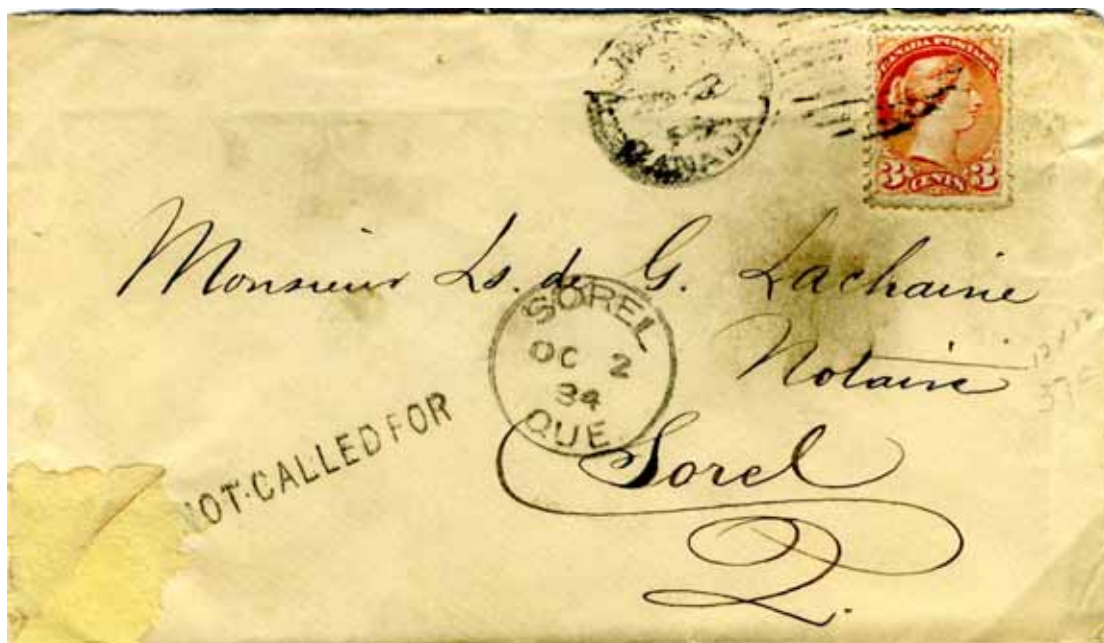 CANADA
CANADA POSTAGE
3 CENTS 3
Monsieur Ls. de G. Lachaine
Notaire
Sorel
Q.
SOREL
OC 2
84
QUE
NOT CALLED FOR